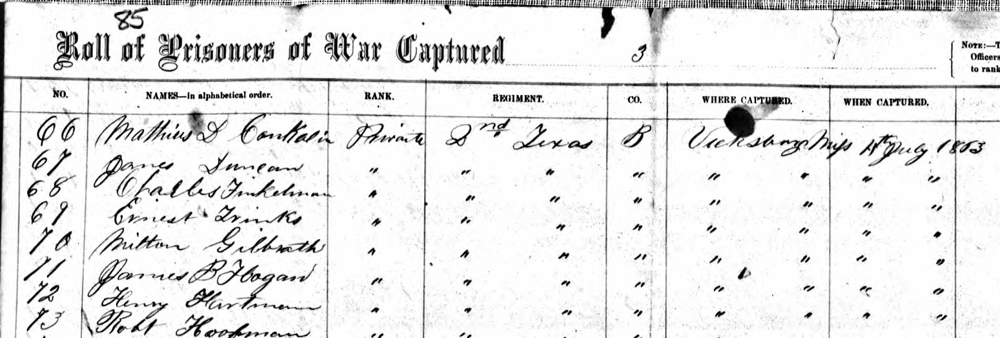 85
Roll of Prisoners of War Captured 3
NOTE:—T
Officers
to rank
NO. NAMES—in alphabetical order. RANK. REGIMENT. CO. WHERE CAPTURED. WHEN CAPTURED.
66 Mathius D Private 2nd Texas B Vicksburg Miss 4th July 1863
67 James Duncan " " " " " " " "
68 Charles Finkelman " " " " " " " "
69 Ernest Frinks " " " " " " " "
70 Milton Gilbreth " " " " " " " "
71 James B Hogan " " " " " " " "
72 Henry Hartman " " " " " " " "
73 Robt